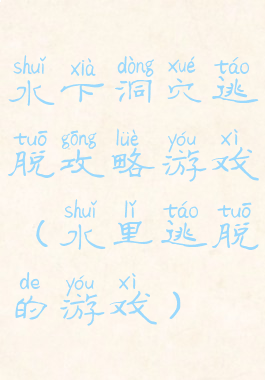 shuǐ xià dòng xué táo
水下洞穴逃
tuō gōng lüè yóu xì
脱攻略游戏
shuǐ lǐ táo tuō
（水里逃脱
de yóu xì
的游戏）